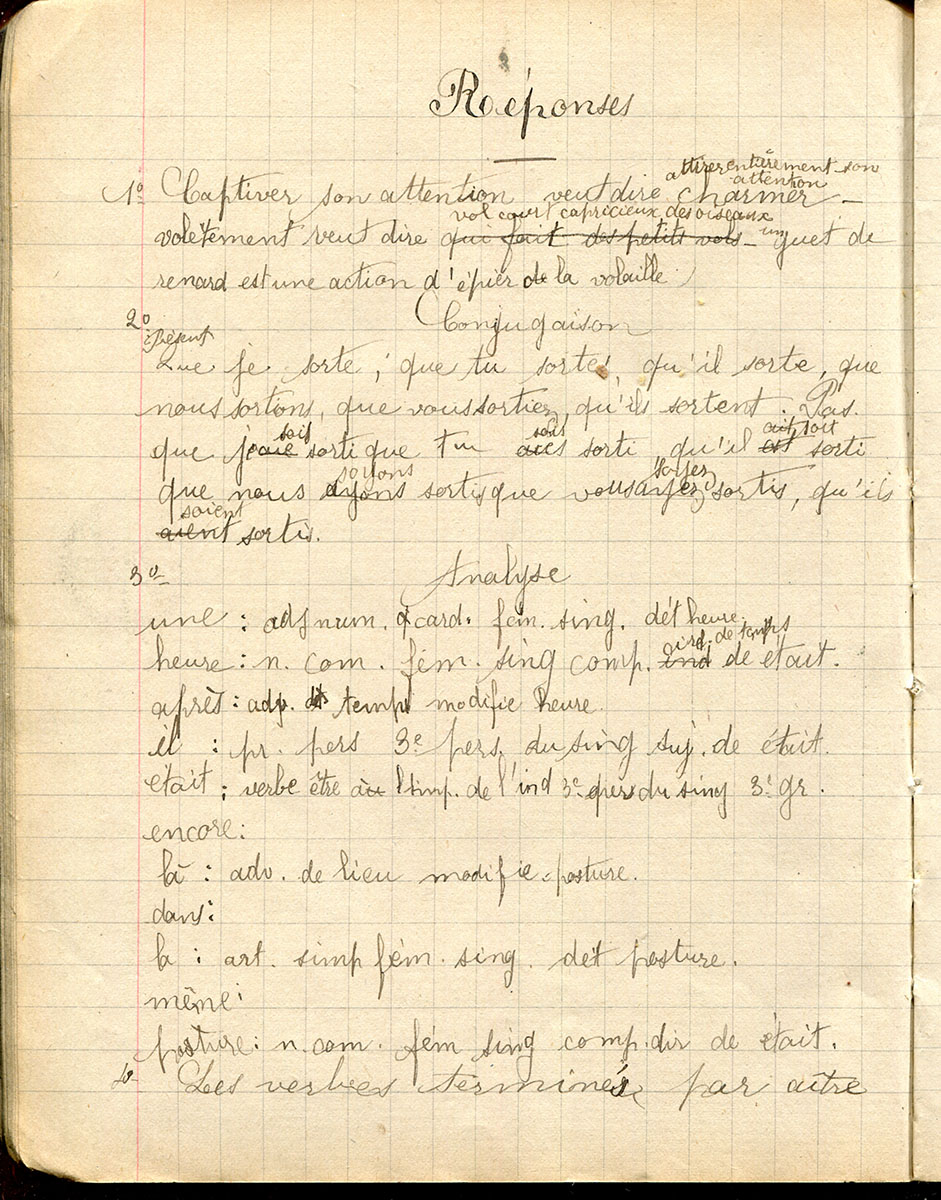 Réponses
attirer entièrement son
attention
1º Captiver son attention veut dire charmer –
vol court capricieux des oiseaux
volètement veut dire qui fait des petits vols – un guet de
renard est une action d'épier de la volaille
2º Conjugaison
Présent
Que je sorte, que tu sortes, qu'il sorte, que
nous sortions, que vous sortiez, qu'ils sortent. Pas.
sois sois ait, soit
que j'aie sorti que tu aies sorti qu'il est sorti
soyons soyez
que nous ayons sortis que vous ayez sortis, qu'ils
soient
aient sortis.
3º Analyse
une : adj num. card. fém. sing. dét heure
ind. de temps
heure : n. com. fém. sing comp. ind de était.
après : adv. de temps modifie heure.
il : pr. pers 3e pers. du sing suj. de était.
était : verbe être à l'imp. de l'ind 3e pers du sing 3e gr.
encore :
là : adv. de lieu modifie posture.
dans :
la : art. simp fém. sing. dét posture.
même :
posture : n. com. fém sing comp. dir de était.
4º Les verbes terminés par aître